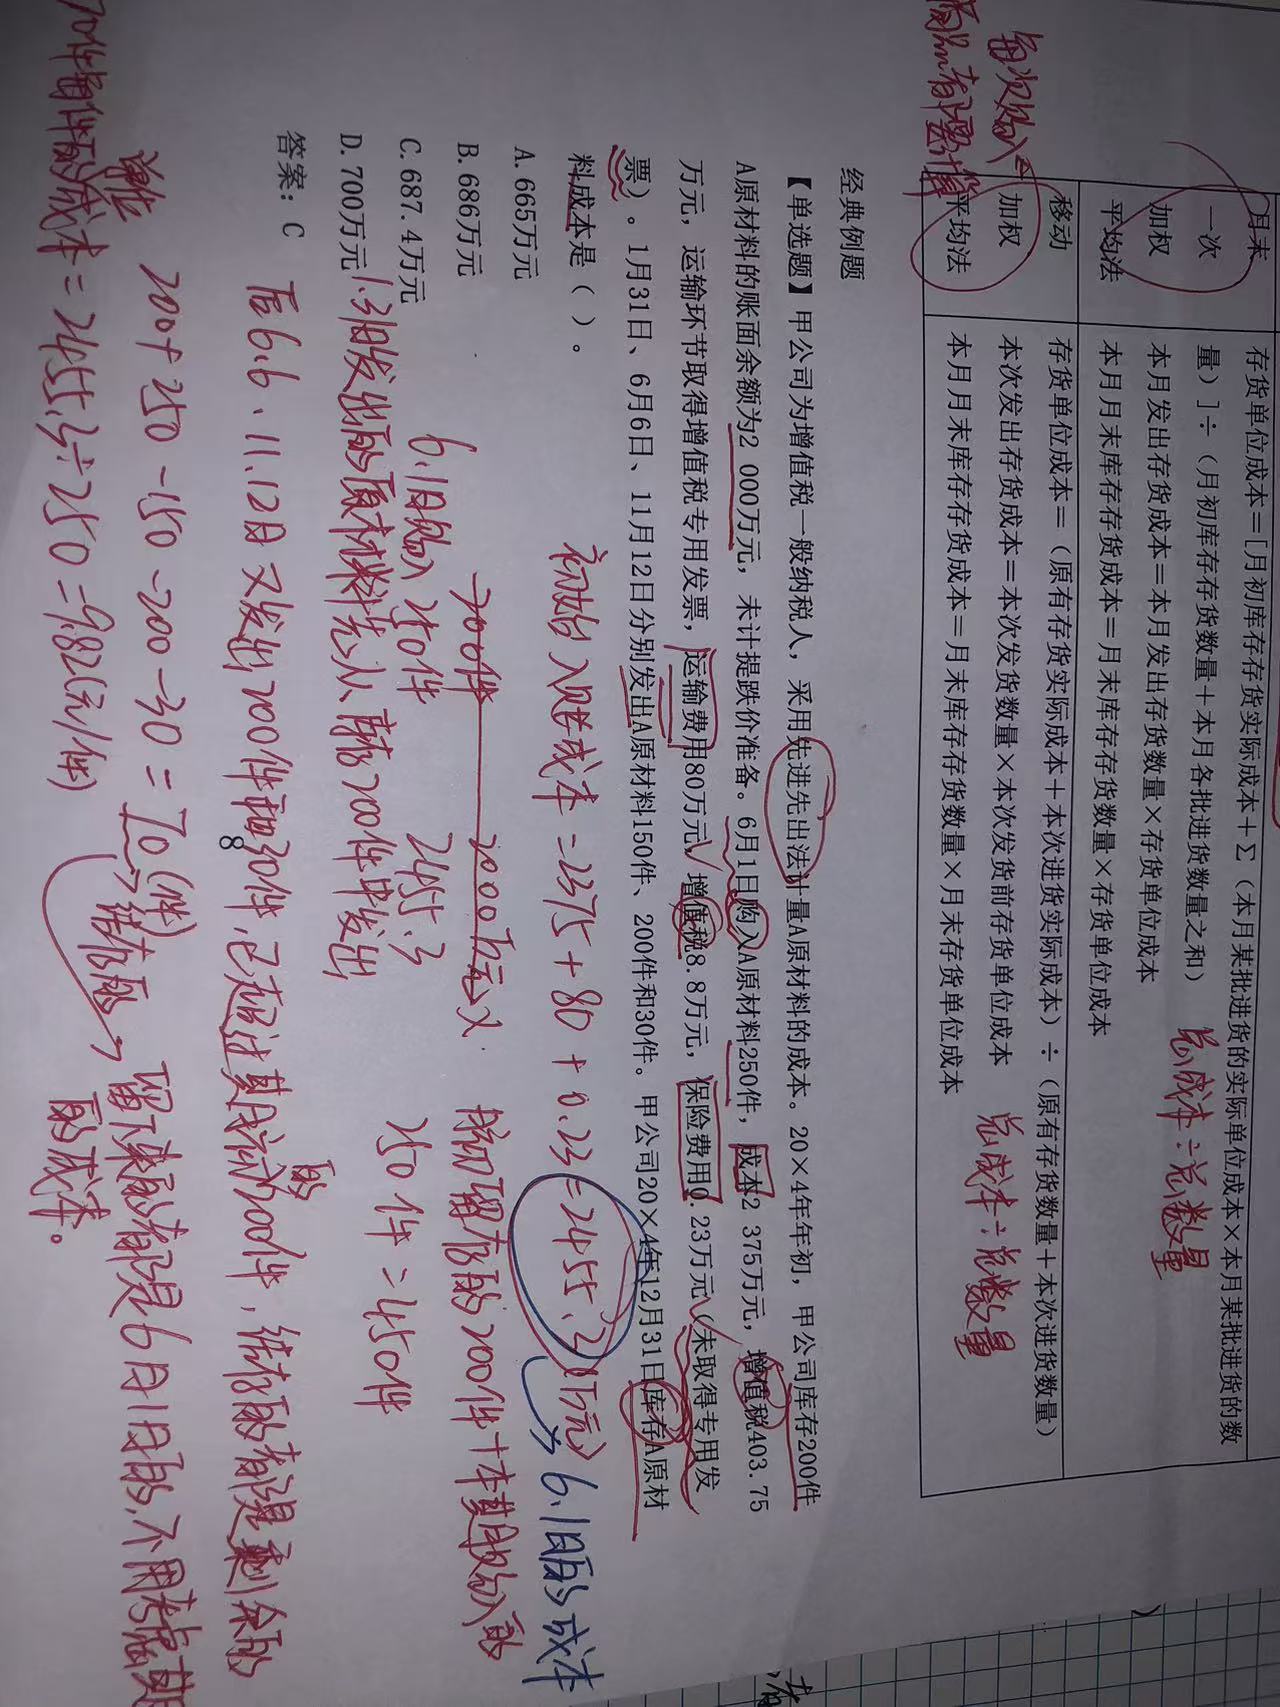 月末
一次
加权
平均法
存货单位成本=[月初库存存货实际成本+Σ（本月某批进货的实际单位成本×本月某批进货的数
量）]÷（月初库存存货数量+本月各批进货数量之和）
本月发出存货成本=本月发出存货数量×存货单位成本
本月月末库存存货成本=月末库存存货数量×存货单位成本
总成本÷总数量
移动
加权
平均法
存货单位成本=（原有存货实际成本+本次进货实际成本）÷（原有存货数量+本次进货数量）
本次发出存货成本=本次发货数量×本次发货前存货单位成本
本月月末库存存货成本=月末库存存货数量×月末存货单位成本
总成本÷总数量
每次购入
都需要计算
经典例题
【单选题】甲公司为增值税一般纳税人，采用先进先出法计量A原材料的成本。20×4年年初，甲公司库存200件
A原材料的账面余额为2 000万元，未计提跌价准备。6月1日购入A原材料250件，成本2 375万元，增值税403.75
万元，运输环节取得增值税专用发票，运输费用80万元，增值税8.8万元，保险费用0.23万元（未取得专用发
票）。1月31日、6月6日、11月12日分别发出A原材料150件、200件和30件。甲公司20×4年12月31日库存A原材
料成本是（ ）。
初始入账成本=2375+80+0.23=2455.3（万元）
6.1日的成本
A.665万元
B.686万元
C.687.4万元
D.700万元
答案：C
200件 2000万元 ×
期初留存的200件+本期购入的
6.1日购入250件 2455.3
250件=450件
1.31日发出的原材料先从存200件中发出
后6.6、11.12日又发出200件和30件，已超过其期初的200件，结存的都是剩余的
200+250-150-200-30=70（件）
结存的
留下来的都是6月1日的，不用考虑期
的成本。
单位
70件每件的成本=2455.3÷250=9.82（元/件）
8